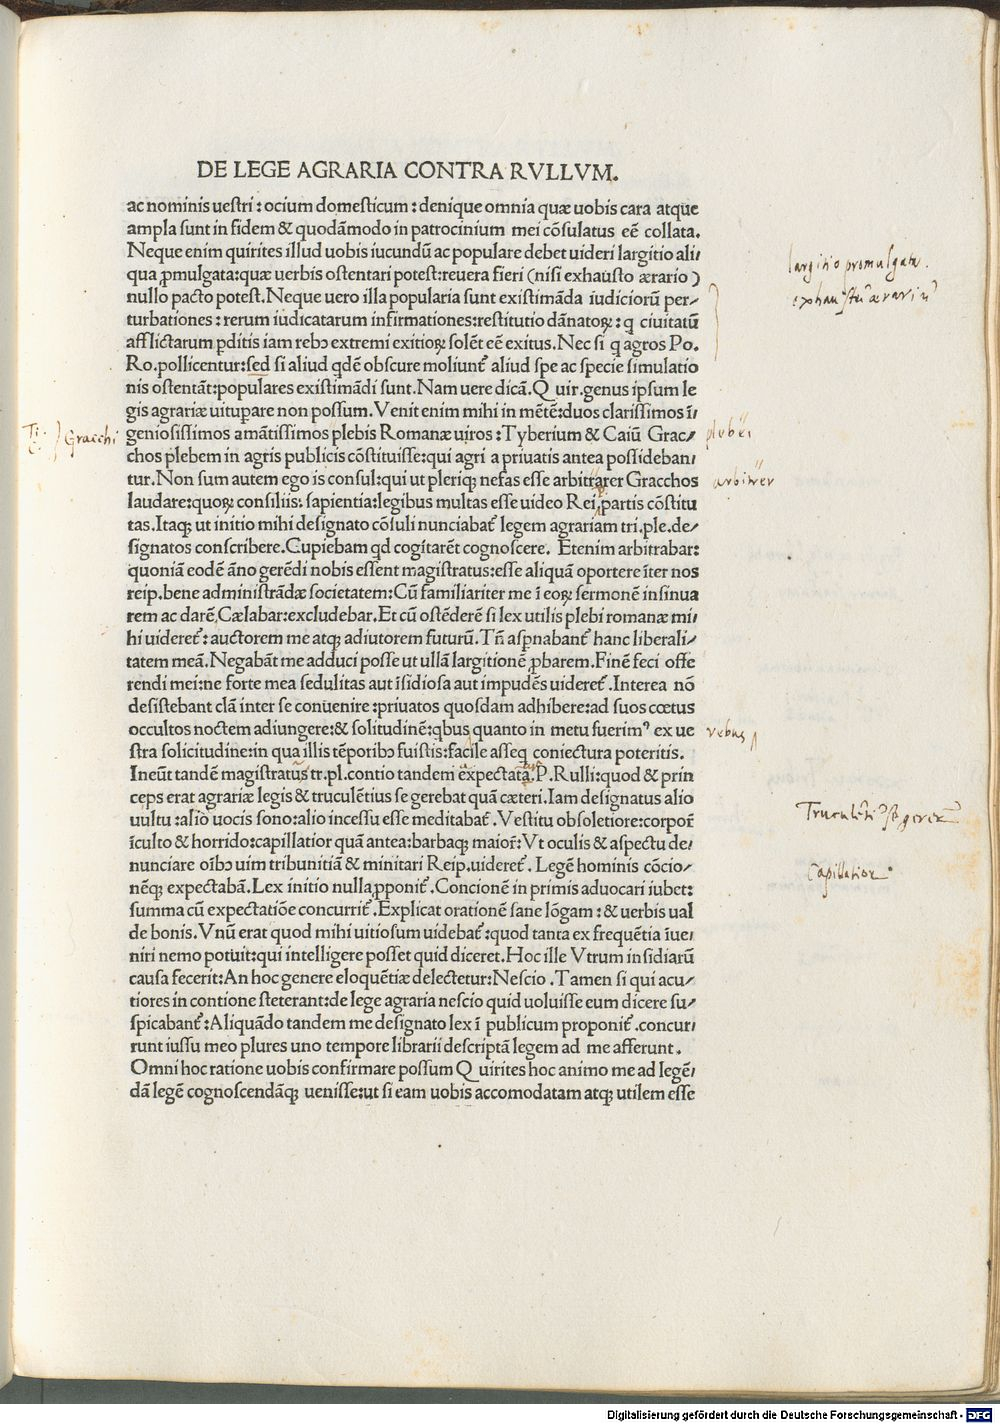 DE LEGE AGRARIA CONTRA RVLLVM.
ac nominis uestri : ocium domesticum : denique omnia quæ uobis cara atque
ampla sunt in fidem & quodãmodo in patrocinium mei cõsulatus eẽ collata.
Neque enim quirites illud uobis iucundũ ac populare debet uideri largitio ali/
qua ꝓmulgata:quæ uerbis ostentari potest:reuera fieri (nisi exhausto ærario)
nullo pacto potest. Neque uero illa popularia sunt existimãda iudiciorũ per/
turbationes : rerum iudicatarum infirmationes:restitutio dãnatoꝝ: q̃ ciuitatũ
afflictarum ꝑditis iam rebꝫ extremi exitioꝝ solẽt eẽ exitus. Nec si q̃ agros Po.
Ro.pollicentur:sed si aliud q̃dẽ obscure moliunt᷑ aliud spe ac specie simulatio
nis ostentãt:populares existimãdi sunt. Nam uere dicã.Q uir.genus ipsum le
gis agrariæ uituꝑare non possum. Venit enim mihi in mẽtẽ:duos clarissimos ĩ/
geniosissimos amãtissimos plebis Romanæ uiros : Tyberium & Caiũ Grac/
chos plebem in agris publicis cõstituisse:qui agri a priuatis antea possideban/
tur. Non sum autem ego is consul:qui ut pleriqꝫ nefas esse arbitrarer Gracchos
laudare:quoꝝ consiliis: sapientia:legibus multas esse uideo Rei.partis cõstitu
tas. Itaqꝫ ut initio mihi designato cõsuli nunciabat᷑ legem agrariam tri.ple.de/
signatos conscribere. Cupiebam qd cogitarẽt cognoscere. Etenim arbitrabar:
quoniã eodẽ ãno gerẽdi nobis essent magistratus:esse aliquã oportere ĩter nos
reip.bene administrãdæ societatem:Cũ familiariter me ĩ eoꝝ sermonẽ insinua
rem ac darẽ. Cælabar:excludebar. Et cũ ostẽderẽ si lex utilis plebi romanæ mi/
hi uideret᷑ : auctorem me atqꝫ adiutorem futurũ. Tñ aspnabant᷑ hanc liberali/
tatem meã. Negabãt me adduci posse ut ullã largitionẽ ꝓbarem. Finẽ feci offe
rendi mei:ne forte mea sedulitas aut ĩsidiosa aut impudẽs uideret᷑. Interea nõ
desistebant clã inter se conuenire :priuatos quosdam adhibere:ad suos cœtus
occultos noctem adiungere:& solitudinẽ:qbus quanto in metu fuerimꝰ ex ue
stra solicitudine:in qua illis tẽporibꝫ fuistis:facile asseq̃ coniectura poteritis.
Ineũt tandẽ magistratus tr.pl.contio tandem expectata.P.Rulli:quod & prin
ceps erat agrariæ legis & truculẽtius se gerebat quã cæteri. Iam designatus alio
uultu :alio uocis sono:alio incessu esse meditabat᷑. Vestitu obsoletiore:corpor̃
ĩculto & horrido:capillatior quã antea:barbaqꝫ maior̃: Vt oculis & aspectu de/
nunciare oĩbꝫ uim tribunitiã & minitari Reip.uideret᷑. Legẽ hominis cõcio/
nẽqꝫ expectabã. Lex initio nulla ꝓponit᷑. Concionẽ in primis aduocari iubet:
summa cũ expectatiõe concurrit᷑. Explicat orationẽ sane lõgam : & uerbis ual
de bonis. Vnũ erat quod mihi uitiosum uidebat᷑ :quod tanta ex frequẽtia ĩue/
niri nemo potuit:qui intelligere posset quid diceret. Hoc ille Vtrum insidiarũ
causa fecerit:An hoc genere eloquẽtiæ delectetur:Nescio . Tamen si qui acu/
tiores in contione steterant:de lege agraria nescio quid uoluisse eum dicere su/
spicabant᷑:Aliquãdo tandem me designato lex ĩ publicum proponit᷑ .concur/
runt iussu meo plures uno tempore librarii descriptã legem ad me afferunt .
Omni hoc ratione uobis confirmare possum Q uirites hoc animo me ad legẽ/
dã legẽ cognoscendãqꝫ uenisse:ut si eam uobis accomodatam atqꝫ utilem esse
largitio promulgata.
exhaustũ ærariũ
Ti.
C. Gracchi
plebei
arbitrer
rebus
Capillatior
Digitalisierung gefördert durch die Deutsche Forschungsgemeinschaft - DFG